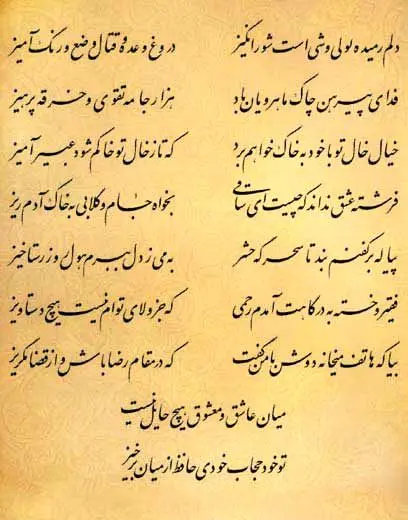 دلم رمیده لولی وشی است شورانگیز دروغ وعده و قتال وضع و رنگ آمیز
فدای پیرهن چاک ماهرویان باد هزار جامه تقوی و خرقه پرهیز
خیال خال تو با خود به خاک خواهم برد که تا ز خال تو خاکم شود عبیرآمیز
فرشته عشق نداند که چیست ای ساقی بخواه جام و گلابی به خاک آدم ریز
پیاله بر کفنم بند تا سحرگه حشر به می ز دل ببرم هول روز رستاخیز
فقیر و خسته به درگاهت آمدم رحمی که جز ولای توام نیست هیچ دستاویز
بیا که هاتف میخانه دوش با من گفت که در مقام رضا باش و از قضا مگریز
میان عاشق و معشوق هیچ حایل نیست
تو خود حجاب خودی حافظ از میان برخیز